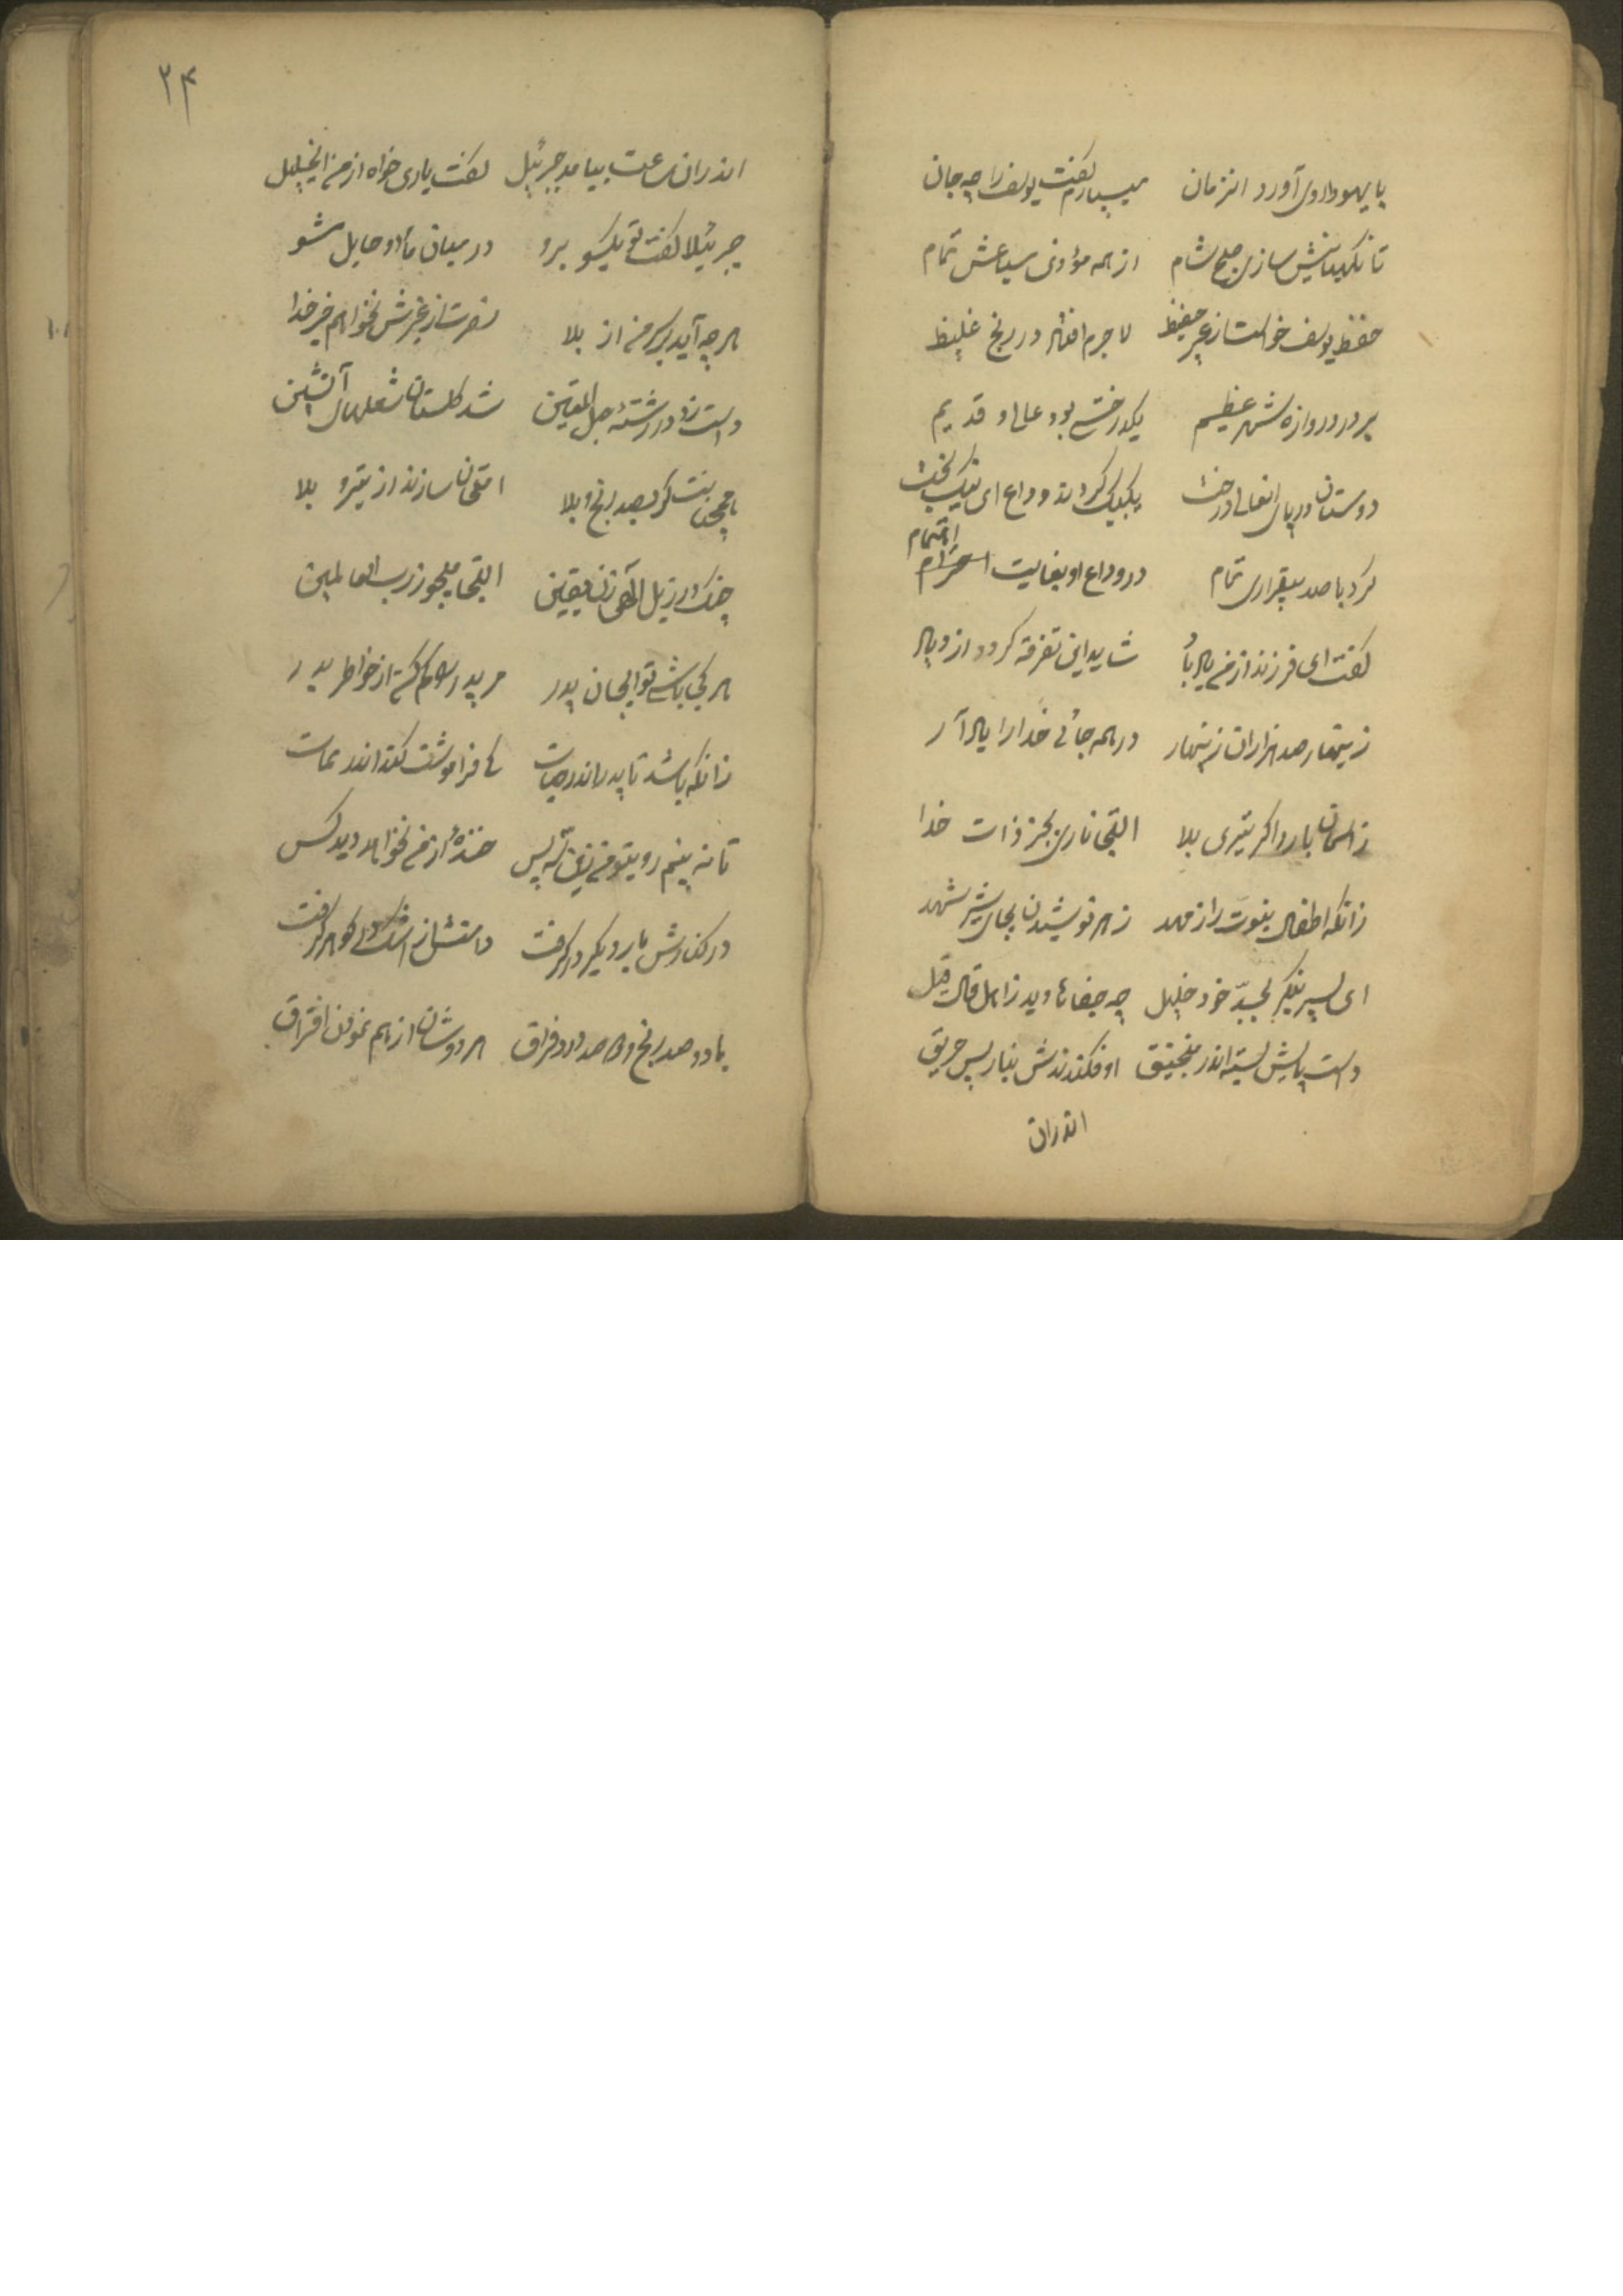 با یهودا روی آورد انزمان میسپارم گفت یوسف را چه جان
تا نگهبانیش سازی صبح شام از همه موذی سباعش تمام
حفظ یوسف خواست از غیر حفیظ لا جرم افتاد در رنج غلیظ
بر در دروازه شهر عظیم یکدرختی بود عالی و قدیم
دوستان در پای انعالی درخت یکبیک کردند وداع ای نیکبخت
کرد با صد بیقراری تمام در وداع او بغایت احترام
اهتمام
گفت ای فرزند از من یاد باد شاید این تفرقه گردد ازدیاد
زینهار صد هزاران زینهار در همه جائی خدا را یاد آر
ز اسمان بارد اگر تیری بلا التجا ناری بجز ذات خدا
زانکه اطفال نبوت را ز مهد زهر نوشیدن بجای شیر شهد
ای پسر بنگر بجدّ خود خلیل چه جفاها دید ز اهل قال قیل
دست پایش بسته اندر منجنیق او فکندندش بنار پس حریق
اندران
۲۴
اندران ساعت بیامد جبرئیل گفت یاری خواه از من ایخلیل
جبرئیلا گفت تو یکسو برو در میان ما دو حایل مشو
هر چه آید بر سر من از بلا نصرت از غیرش نخواهم جز خدا
دست زد در رشتهٔ حبل المتین شد گلستان شعلهای آتشین
با محبانت گر بصد رنج و بلا امتحان سازند از تیر و بلا
چنک در ذیل الهی زن یقین التجا میجو ز رب العالمین
هر کجا باشی تو ایجان پدر مر پدر را کم کن از خواطر بدر
زانکه باشد تا پدر اندر حیات کی فراموشت کند اندر ممات
تا نه بینم رویتو من زین سپس خندهٔ از من نخواهد دید کس
در کنارش بار دیگر در گرفت دامنش از اشک در گوهر گرفت
با دو صد رنج و دو صد درد فراق هر دوشان از هم نمودن افتراق